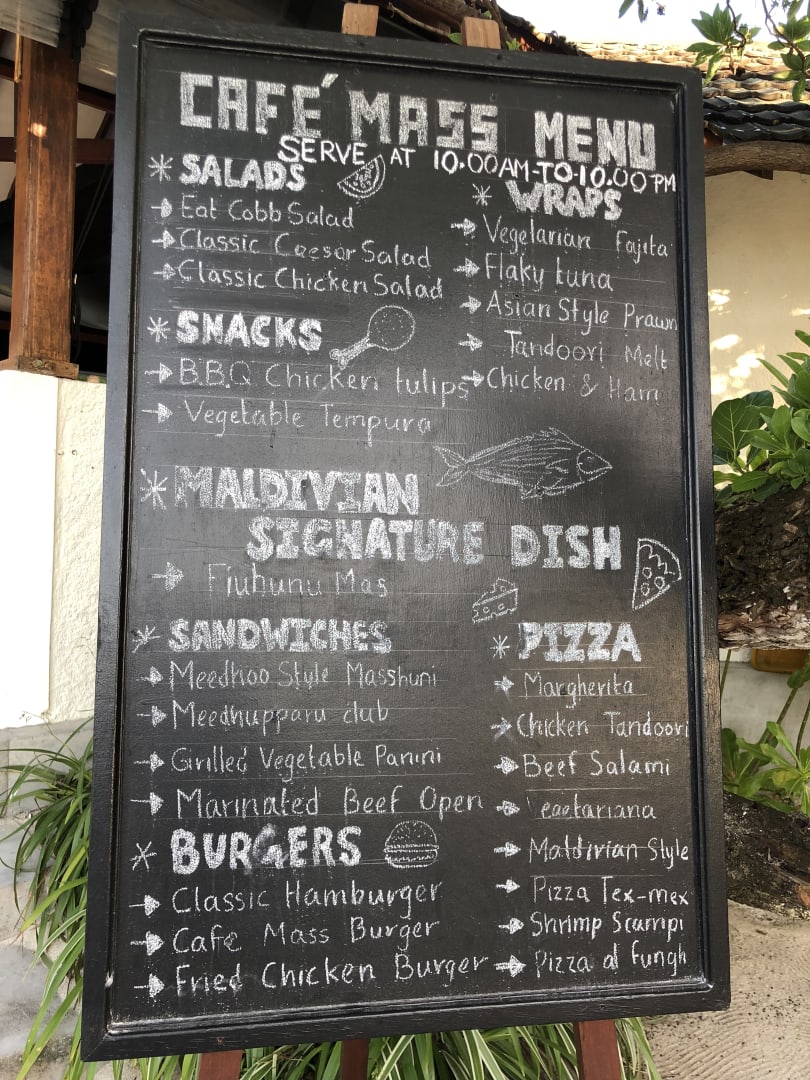 CAFÉ MASS MENU
SERVE AT 10.00AM-TO-10.00PM
SALADS
Eat Cobb Salad
Classic Caesar Salad
Classic Chicken Salad
WRAPS
Vegetarian Fajita
Flaky tuna
Asian Style Prawn
Tandoori Melt
Chicken & Ham
SNACKS
B.B.Q Chicken tulips
Vegetable Tempura
MALDIVIAN
SIGNATURE DISH
Fiuhunu Mas
SANDWICHES
Meedhoo Style Masshuni
Meedhupparu club
Grilled Vegetable Panini
Marinated Beef Open
BURGERS
Classic Hamburger
Cafe Mass Burger
Fried Chicken Burger
PIZZA
Margherita
Chicken Tandoori
Beef Salami
Vegetariana
Maldivian Style
Pizza Tex-mex
Shrimp Scampi
Pizza al Fungh